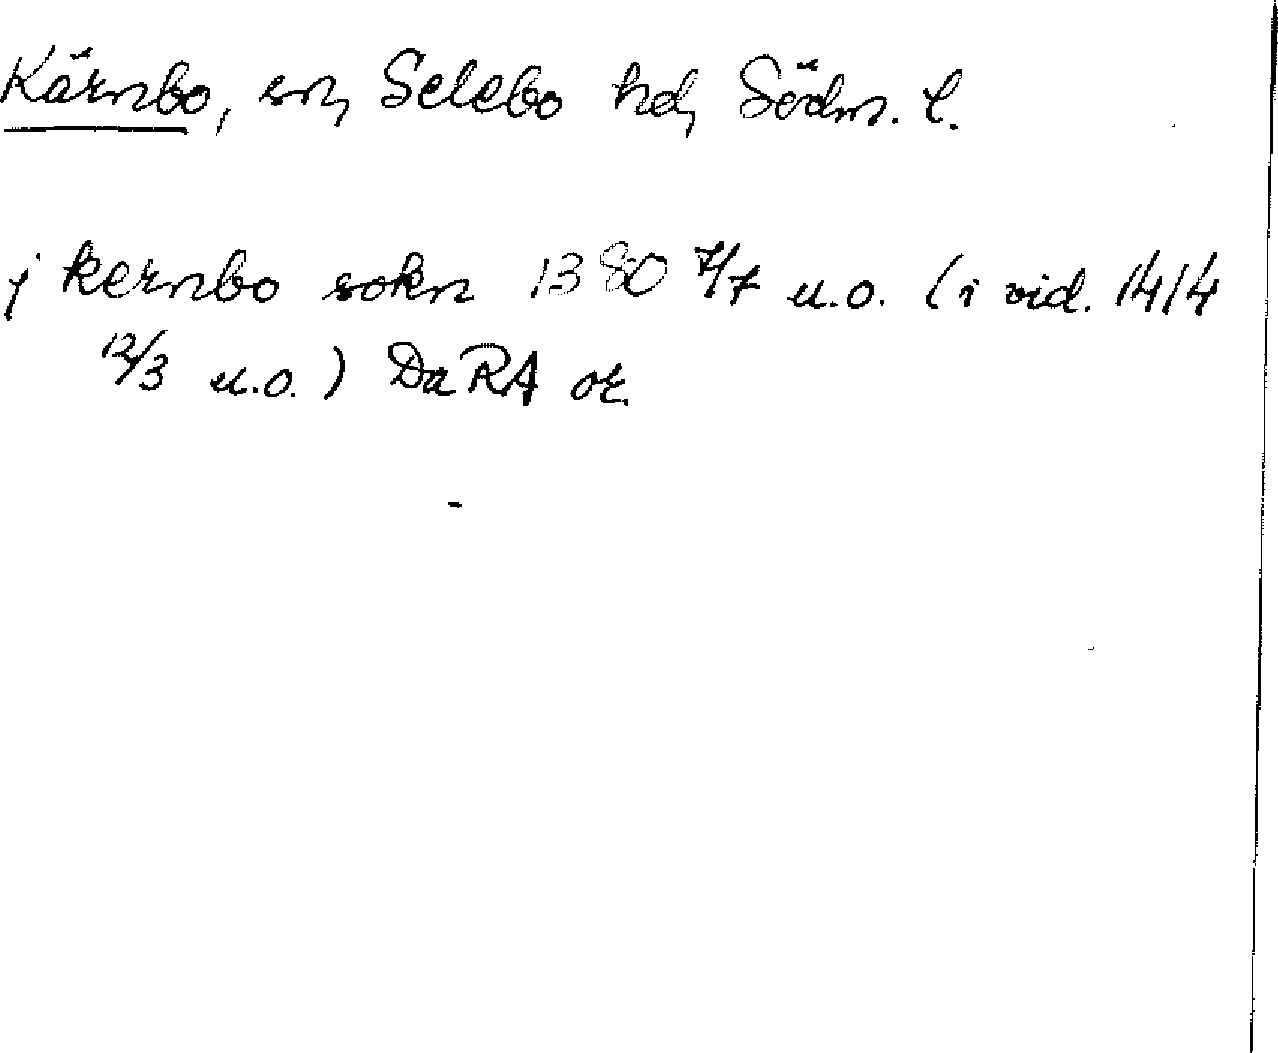 Kärnbo, sn, Selebo hd, Södm. l.
j kernbo sokn 1380 7/7 u.o. (i vid. 1414
12/3 u.o.) DaRA or.